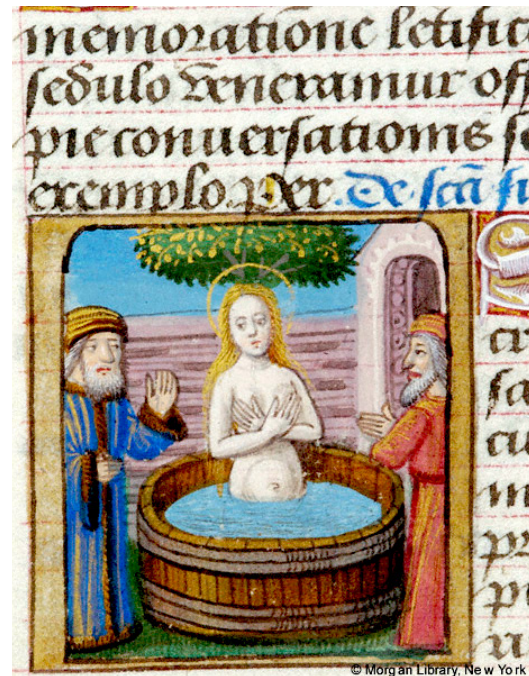 memoratione letific
sedulo veneramur off
pie conuersationis se
exemplo. Per. De scā
© Morgan Library, New York